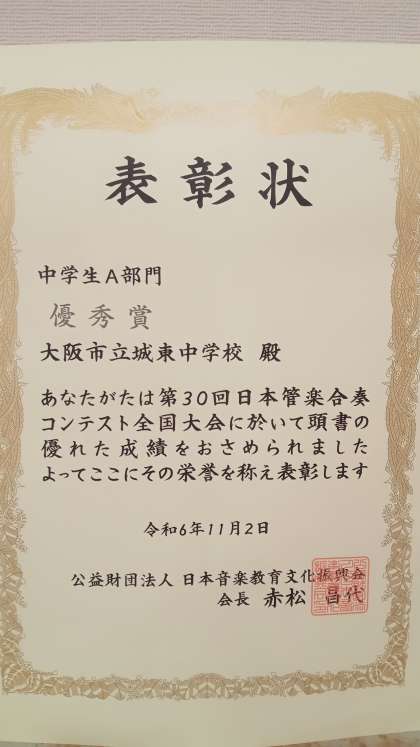 表彰状
中学生A部門
優秀賞
大阪市立城東中学校 殿
あなたがたは第30回日本管楽合奏
コンテスト全国大会に於いて頭書の
優れた成績をおさめられました
よってここにその栄誉を称え表彰します
令和6年11月2日
公益財団法人 日本音楽教育文化振興会
会長 赤松 昌代